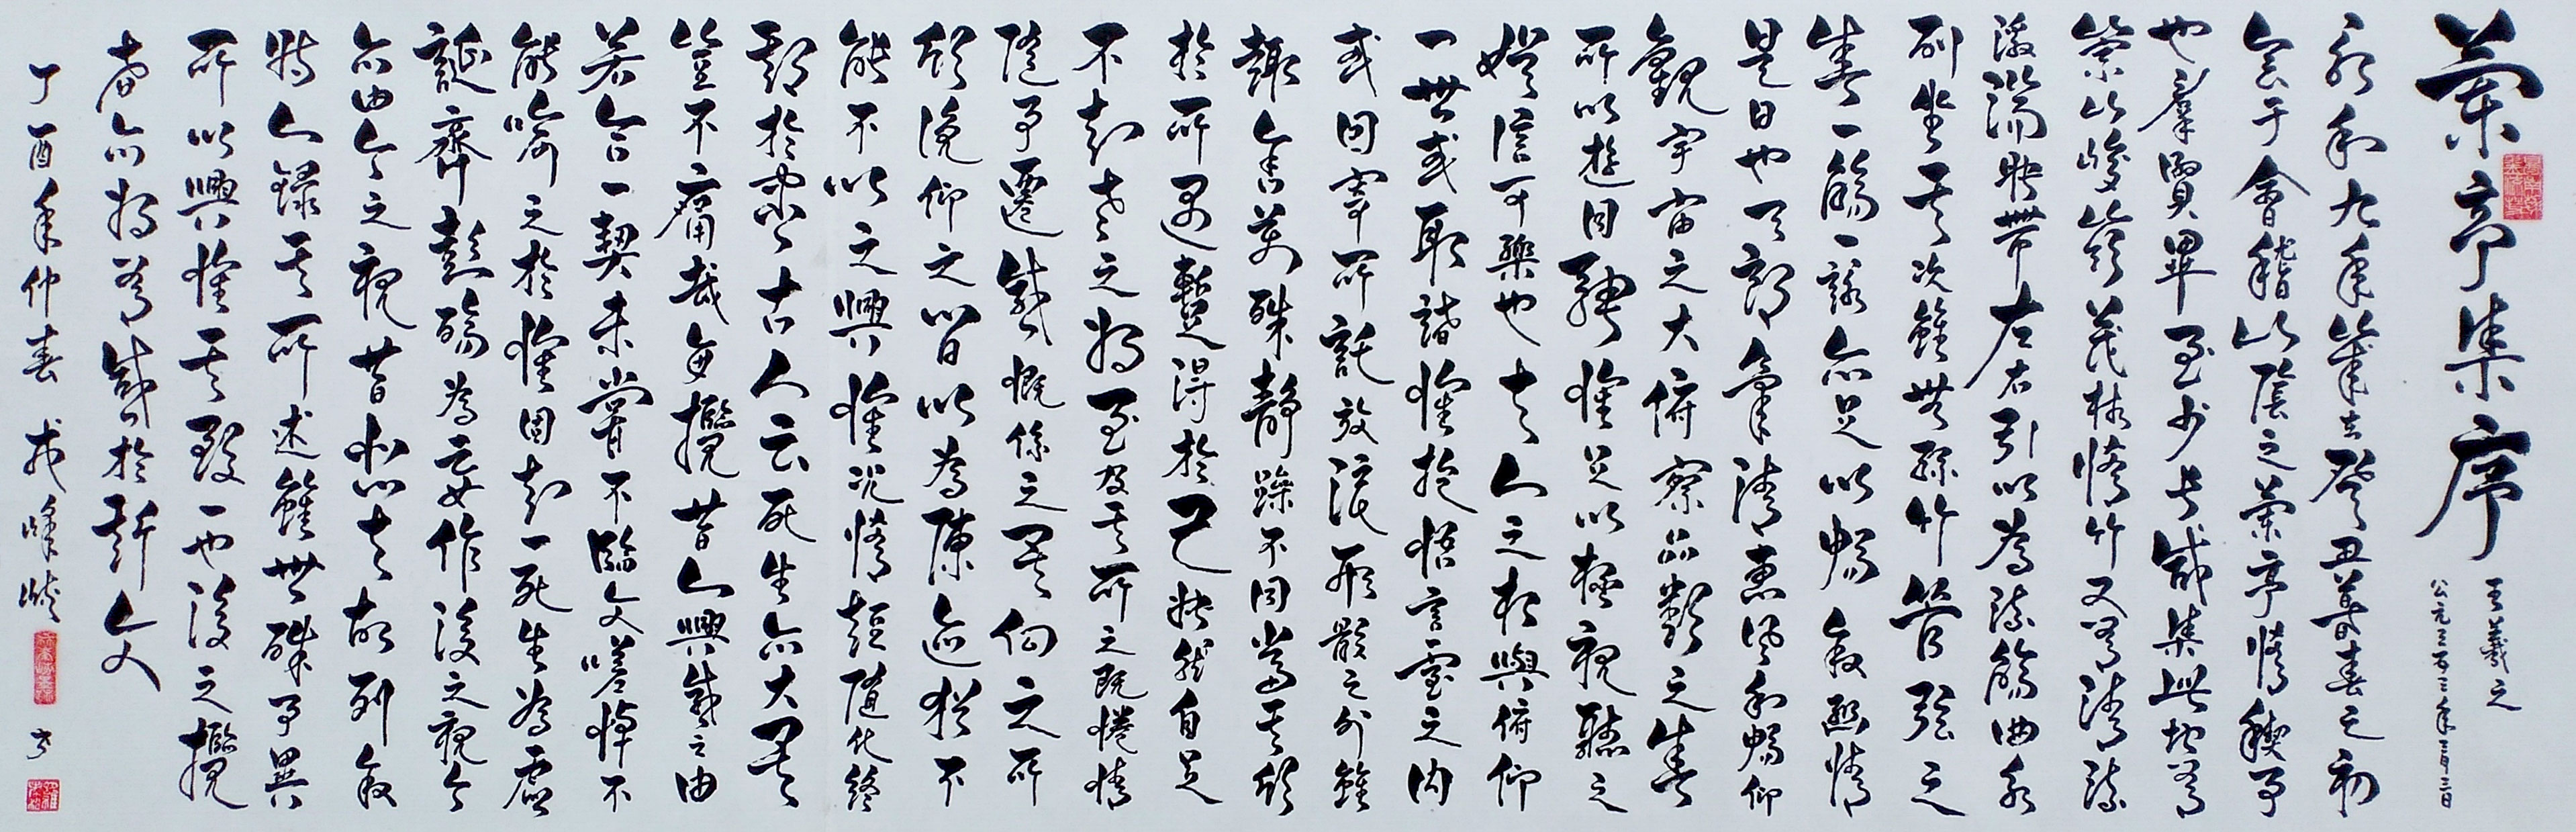 蘭亭集序
王羲之
公元三五三年三月三日
永和九年歲在癸丑暮春之初
會于會稽山陰之蘭亭脩稧事
也羣賢畢至少長咸集此地有
崇山峻嶺茂林脩竹又有清流
激湍映帶左右引以為流觴曲水
列坐其次雖無絲竹管弦之
盛一觴一詠亦足以暢敘幽情
是日也天朗氣清惠風和暢仰
觀宇宙之大俯察品類之盛
所以遊目騁懷足以極視聽之
娛信可樂也夫人之相與俯仰
一世或取諸懷抱悟言一室之內
或因寄所託放浪形骸之外雖
趣舍萬殊靜躁不同當其欣
於所遇暫得於己怏然自足
不知老之將至及其所之既惓情
隨事遷感慨係之矣向之所
欣俛仰之間以為陳迹猶不
能不以之興懷況脩短隨化終
期於盡古人云死生亦大矣
豈不痛哉每攬昔人興感之由
若合一契未嘗不臨文嗟悼不
能喻之於懷固知一死生為虛
誕齊彭殤為妄作後之視今
亦由今之視昔悲夫故列敘
時人錄其所述雖世殊事異
所以興懷其致一也後之攬
者亦將有感於斯文
丁酉年仲春 峰 書